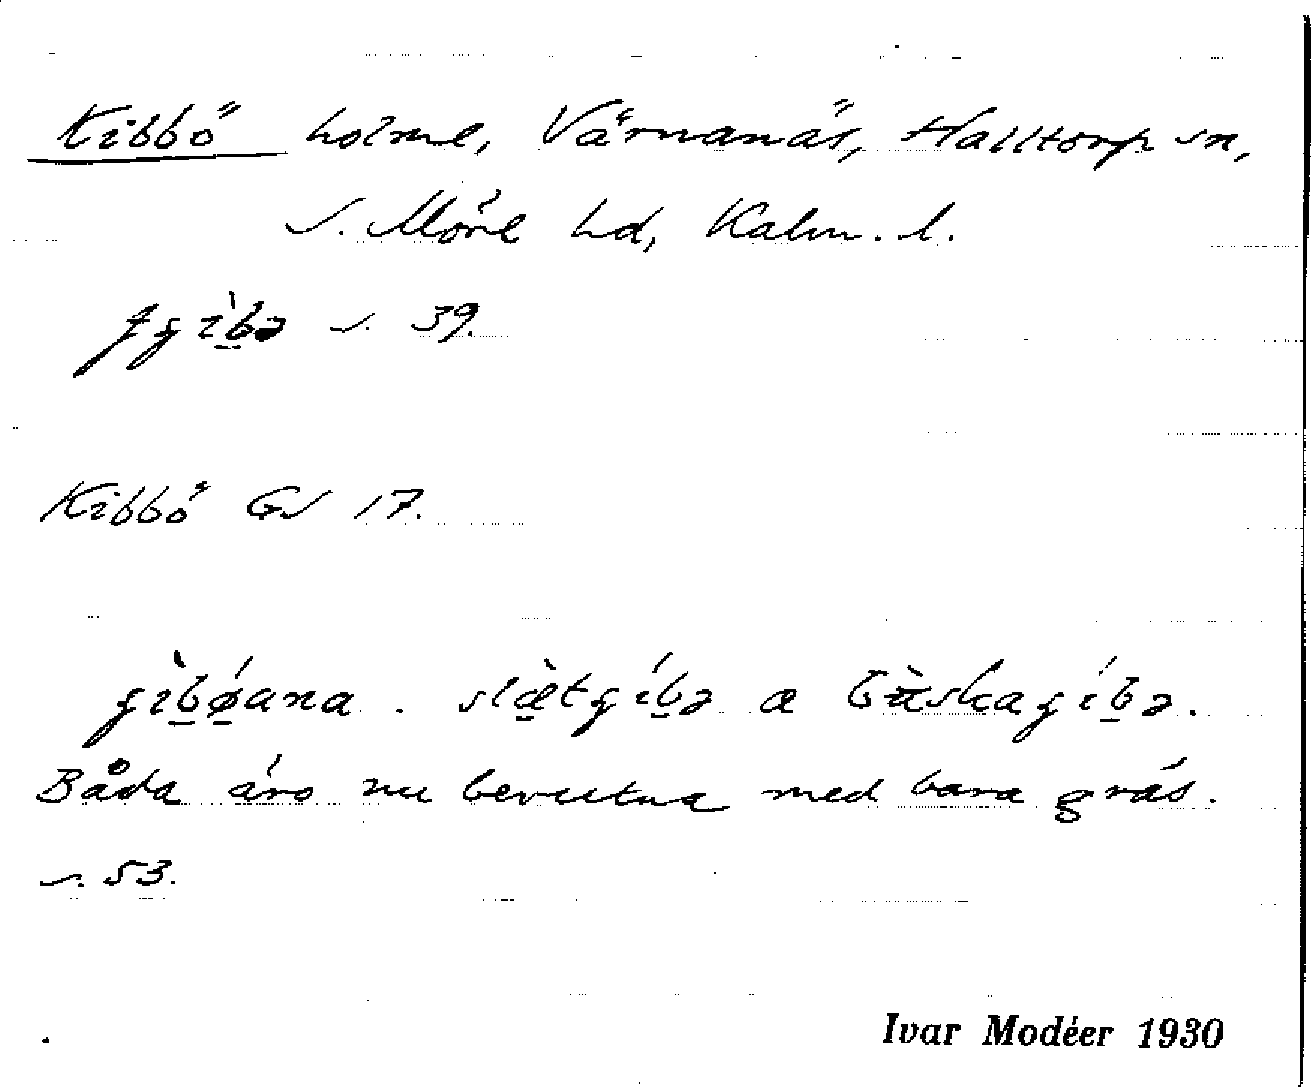 Kibbö holme, Värnanäs, Halltorp sn,
S. Möre hd, Kalm. l.
s. 39.
Kibbö GS 17.
gìbǿana . slæ̀tgíbə a bùskagíbə.
Båda äro nu bevuxtna med bara gräs.
s. 53.
Ivar Modéer 1930